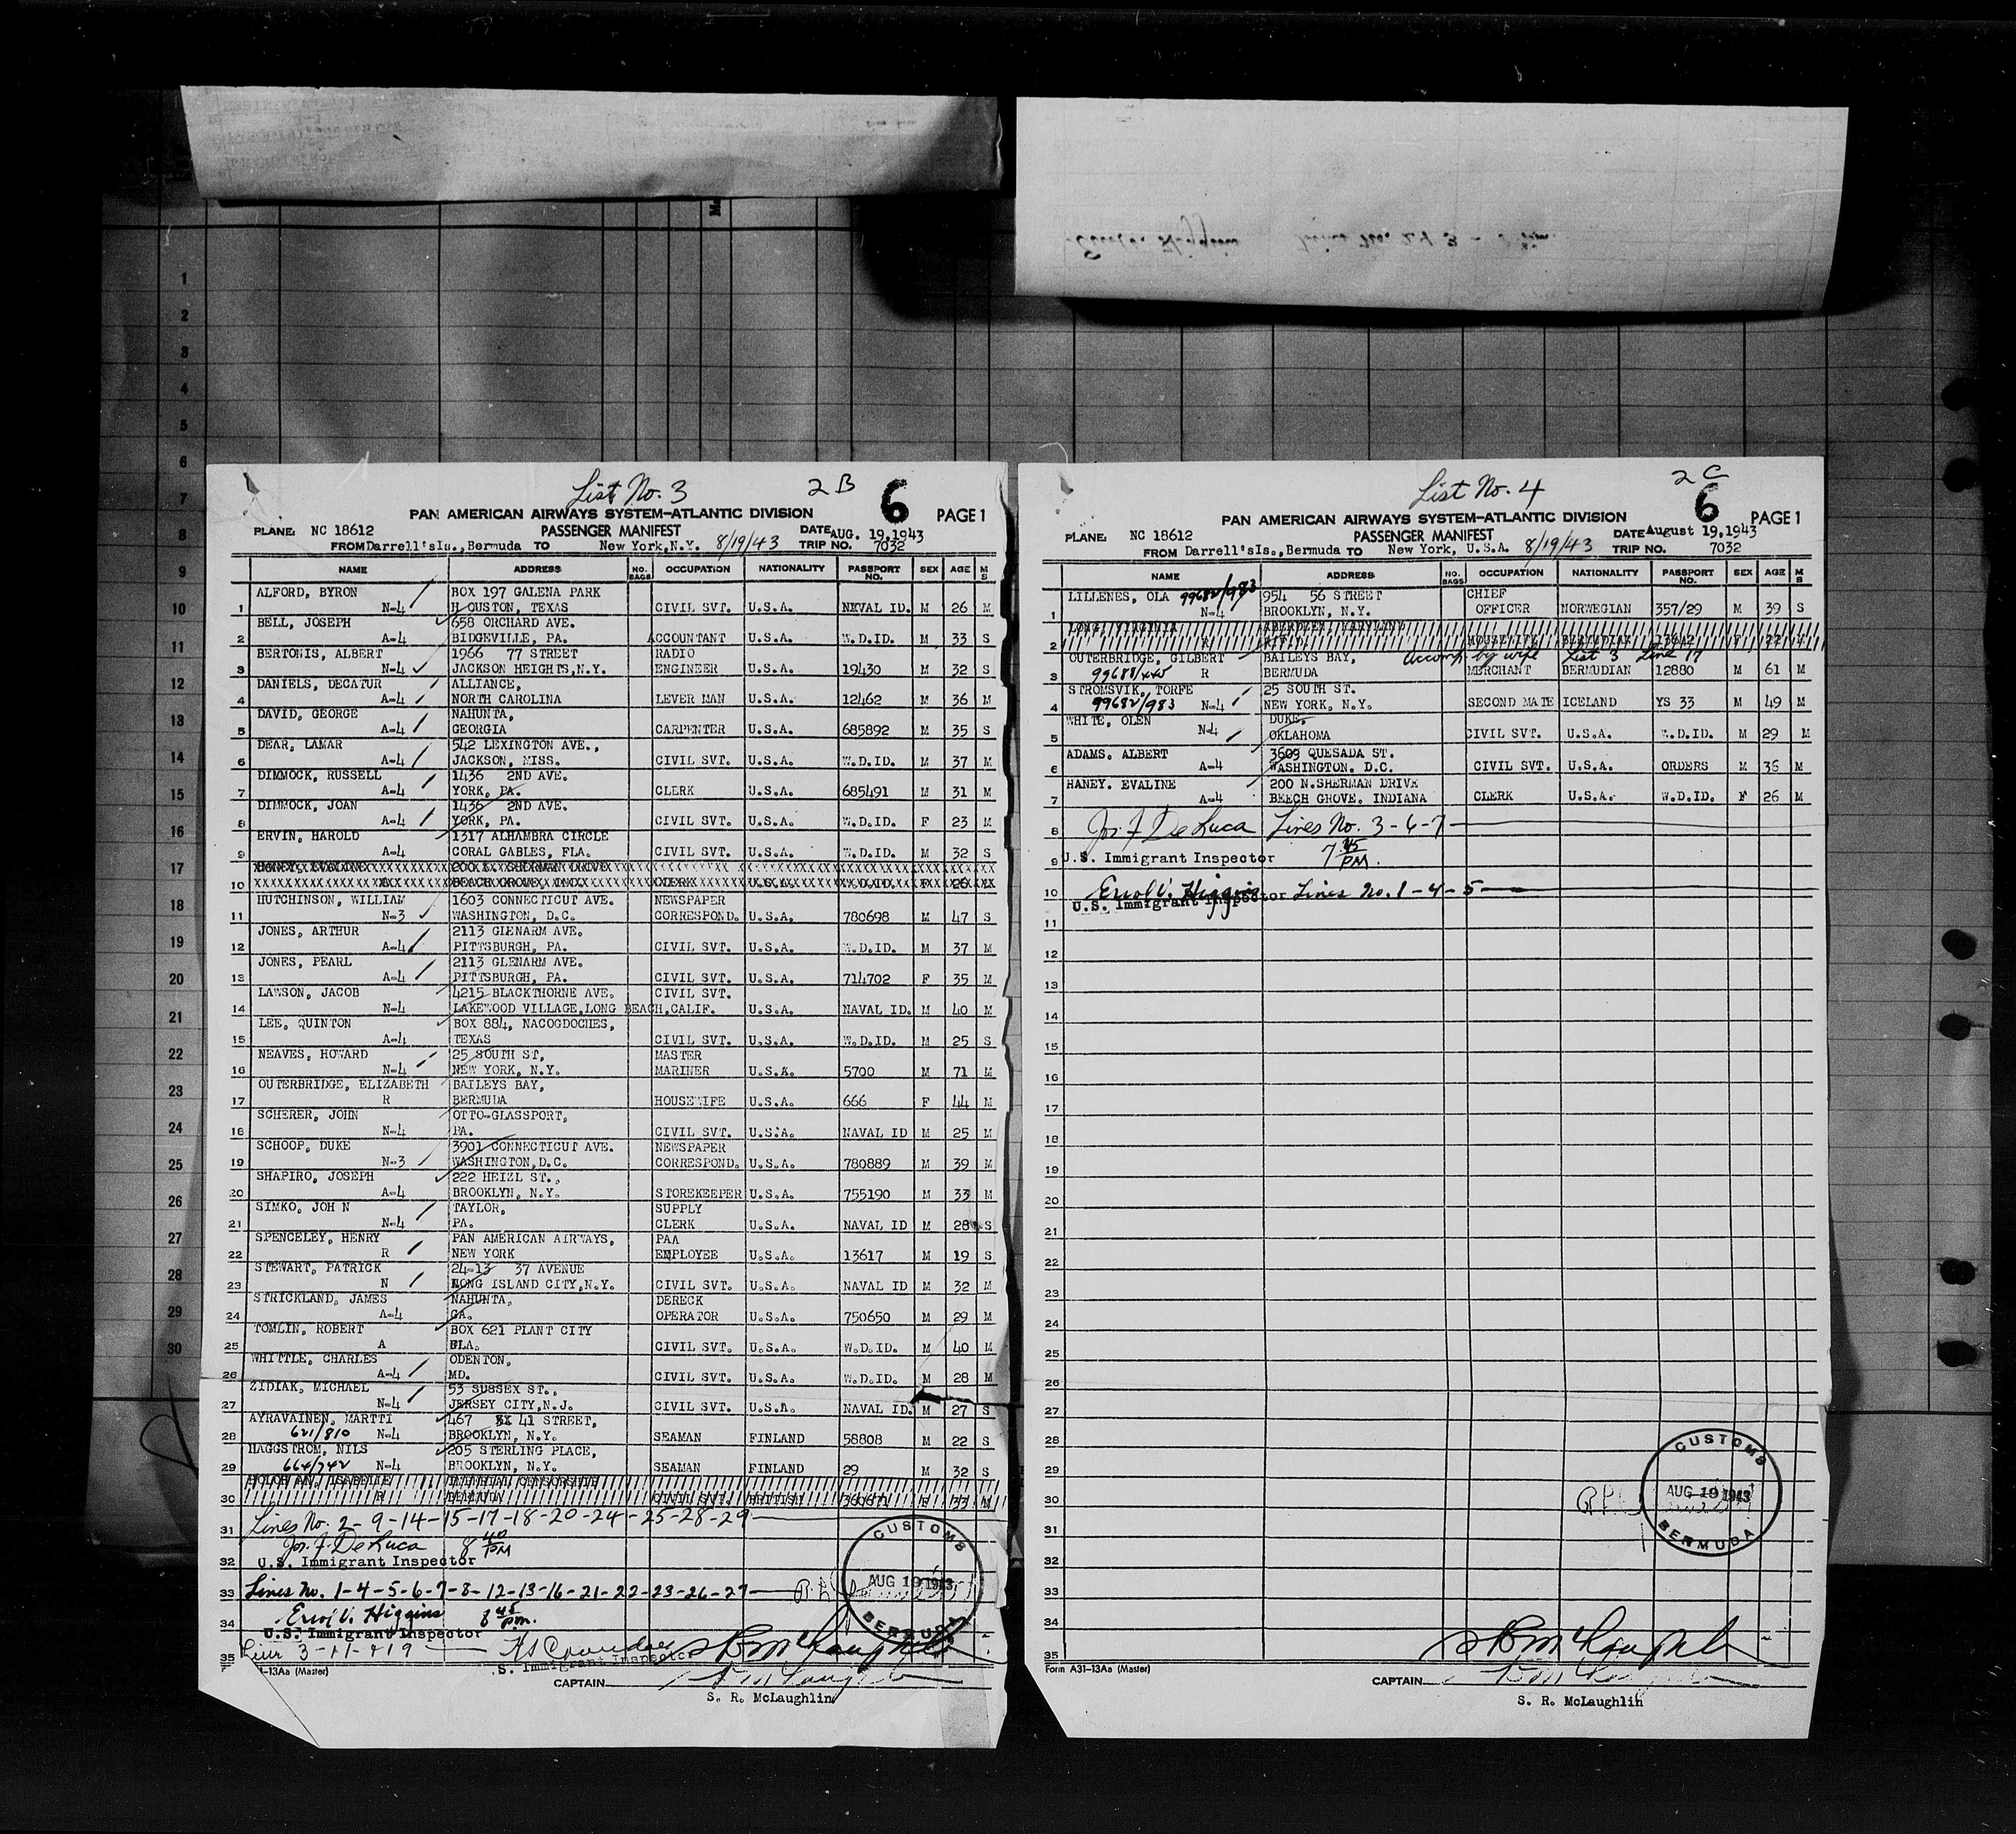 List No. 3
2B
6
PAN AMERICAN AIRWAYS SYSTEM-ATLANTIC DIVISION PAGE 1
PLANE: NC 18612 PASSENGER MANIFEST DATE AUG. 19,1943
FROM Darrell'sIs.,Bermuda TO New York,N.Y. 8/19/43 TRIP NO. 7032
NAME ADDRESS NO. BAGS OCCUPATION NATIONALITY PASSPORT NO. SEX AGE M S
ALFORD, BYRON BOX 197 GALENA PARK
1 N-4 H OUSTON, TEXAS CIVIL SVT. U.S.A. NAVAL ID. M 26 M
BELL, JOSEPH 658 ORCHARD AVE.
2 A-4 BIDGEVILLE, PA. ACCOUNTANT U.S.A. W.D.ID. M 33 S
BERTONIS, ALBERT 1966 77 STREET RADIO
3 N-4 JACKSON HEIGHTS,N.Y. ENGINEER U.S.A. 19430 M 32 S
DANIELS, DECATUR ALLIANCE,
4 A-4 NORTH CAROLINA LEVER MAN U.S.A. 12462 M 36 M
DAVID, GEORGE NAHUNTA,
5 A-4 GEORGIA CARPENTER U.S.A. 685892 M 35 S
DEAR, LAMAR 542 LEXINGTON AVE.,
6 A-4 JACKSON, MISS. CIVIL SVT. U.S.A. W.D.ID. M 37 M
DIMMOCK, RUSSELL 1436 2ND AVE.
7 A-4 YORK, PA. CLERK U.S.A. 685491 M 31 M
DIMMOCK, JOAN 1436 2ND AVE.
8 A-4 YORK, PA. CIVIL SVT. U.S.A. W.D.ID. F 23 M
ERVIN, HAROLD 1317 ALHAMBRA CIRCLE
9 A-4 CORAL GABLES, FLA. CIVIL SVT. U.S.A. W.D.ID. M 32 S
HANEY, EVALINE 200 N. SHERMAN DRIVE
10 BEACH GROVE, IND. CLERK U.S.A. W.D.ID. F 26
HUTCHINSON, WILLIAM 1603 CONNECTICUT AVE. NEWSPAPER
11 N-3 WASHINGTON, D.C. CORRESPOND. U.S.A. 780698 M 47 S
JONES, ARTHUR 2113 GLENARM AVE.
12 A-4 PITTSBURGH, PA. CIVIL SVT. U.S.A. W.D.ID. M 37 M
JONES, PEARL 2113 GLENARM AVE.
13 A-4 PITTSBURGH, PA. CIVIL SVT. U.S.A. 714702 F 35 M
LAWSON, JACOB 4215 BLACKTHORNE AVE. CIVIL SVT.
14 N-4 LAKEWOOD VILLAGE,LONG BEACH,CALIF. U.S.A. NAVAL ID. M 40 M
LEE, QUINTON BOX 884, NACOGDOCHES,
15 A-4 TEXAS CIVIL SVT. U.S.A. W.D.ID. M 25 S
NEAVES, HOWARD 25 SOUTH ST, MASTER
16 N-4 NEW YORK, N.Y. MARINER U.S.A. 5700 M 71 M
OUTERBRIDGE, ELIZABETH BAILEYS BAY,
17 R BERMUDA HOUSEWIFE U.S.A. 666 F 44 M
SCHERER, JOHN OTTO-GLASSPORT,
18 N-4 PA. CIVIL SVT. U.S.A. NAVAL ID M 25 M
SCHOOP, DUKE 3901 CONNECTICUT AVE. NEWSPAPER
19 N-3 WASHINGTON,D.C. CORRESPOND. U.S.A. 780889 M 39 M
SHAPIRO, JOSEPH 222 HEIZL ST.,
20 A-4 BROOKLYN, N.Y. STOREKEEPER U.S.A. 755190 M 33 M
SIMKO, JOH N TAYLOR, SUPPLY
21 N-4 PA. CLERK U.S.A. NAVAL ID M 28 S
SPENCELEY, HENRY PAN AMERICAN AIRWAYS, PAA
22 R NEW YORK EMPLOYEE U.S.A. 13617 M 19 S
STEWART, PATRICK 24-13 37 AVENUE
23 N LONG ISLAND CITY,N.Y. CIVIL SVT. U.S.A. NAVAL ID M 32 M
STRICKLAND, JAMES NAHUNTA, DERECK
24 A-4 GA. OPERATOR U.S.A. 750650 M 29 M
TOMLIN, ROBERT BOX 621 PLANT CITY
25 A FLA. CIVIL SVT. U.S.A. W.D.ID. M 40 M
WHITTLE, CHARLES ODENTON,
26 A-4 MD. CIVIL SVT. U.S.A. W.D.ID. M 28 M
ZIDIAK, MICHAEL 53 SUSSEX ST.,
27 N-4 JERSEY CITY,N.J. CIVIL SVT. U.S.A. NAVAL ID. M 27 S
AYRAVAINEN, MARTTI 467 41 STREET,
28 621/810 N-4 BROOKLYN, N.Y. SEAMAN FINLAND 58808 M 22 S
HAGGSTROM, NILS 205 STERLING PLACE,
29 664/742 N-4 BROOKLYN, N.Y. SEAMAN FINLAND 29 M 32 S
ISABELLE IMPERIAL CENSORSHIP
30 R BERMUDA CIVIL SVT. BRITISH 360671 F 33 M
Lines No. 2-9-14-15-17-18-20-24-25-28-29
31 Jos. F. De Luca 8 40 PM
32 U.S. Immigrant Inspector
33 Lines No. 1-4-5-6-7-8-12-13-16-21-22-23-26-27
Errol V. Higgins 8 45 pm.
34 U.S. Immigrant Inspector
35 3-11-19
S. Immigrant Inspector
CUSTOMS
AUG 19 1943
BERMUDA
-13Aa (Master)
CAPTAIN
S. R. McLaughlin
List No. 4
2C
6
PAN AMERICAN AIRWAYS SYSTEM-ATLANTIC DIVISION PAGE 1
PLANE: NC 18612 PASSENGER MANIFEST DATE August 19,1943
FROM Darrell'sIs.,Bermuda TO New York, U.S.A. 8/19/43 TRIP NO. 7032
NAME ADDRESS NO. BAGS OCCUPATION NATIONALITY PASSPORT NO. SEX AGE M S
LILLENES, OLA 99682/983 954 56 STREET CHIEF
1 N-4 BROOKLYN, N.Y. OFFICER NORWEGIAN 357/29 M 39 S
LONG, VIRGINIA ABERDEEN, MARYLAND
2 R R.F.D. HOUSEWIFE BERMUDIAN 13642 F 22 M
OUTERBRIDGE, GILBERT BAILEYS BAY, Accomp. by wife List 3 Line 17
3 99688/445 R BERMUDA MERCHANT BERMUDIAN 12880 M 61 M
STROMSVIK, TORFE 25 SOUTH ST.
4 99682/983 N-4 NEW YORK, N.Y. SECOND MATE ICELAND YS 33 M 49 M
WHITE, OLEN DUKE,
5 N-4 OKLAHOMA CIVIL SVT. U.S.A. W.D.ID. M 29 M
ADAMS, ALBERT 3609 QUESADA ST.
6 A-4 WASHINGTON, D.C. CIVIL SVT. U.S.A. ORDERS M 36 M
HANEY. EVALINE 200 N.SHERMAN DRIVE
7 A-4 BEECH GROVE. INDIANA CLERK U.S.A. W.D.ID. F 26 M
8 Jos. F. De Luca Lines No. 3-6-7
9 U.S. Immigrant Inspector 7 45 PM.
10 Errol V. Higgins Lines No. 1-4-5
U.S. Immigrant Inspector
11
12
13
14
15
16
17
18
19
20
21
22
23
24
25
26
27
28
29
30
31
32
33
34
35
CUSTOMS
AUG 19 1943
BERMUDA
Form A31-13Aa (Master)
CAPTAIN
S. R. McLaughlin
1
2
3
4
5
6
7
8
9
10
11
12
13
14
15
16
17
18
19
20
21
22
23
24
25
26
27
28
29
30